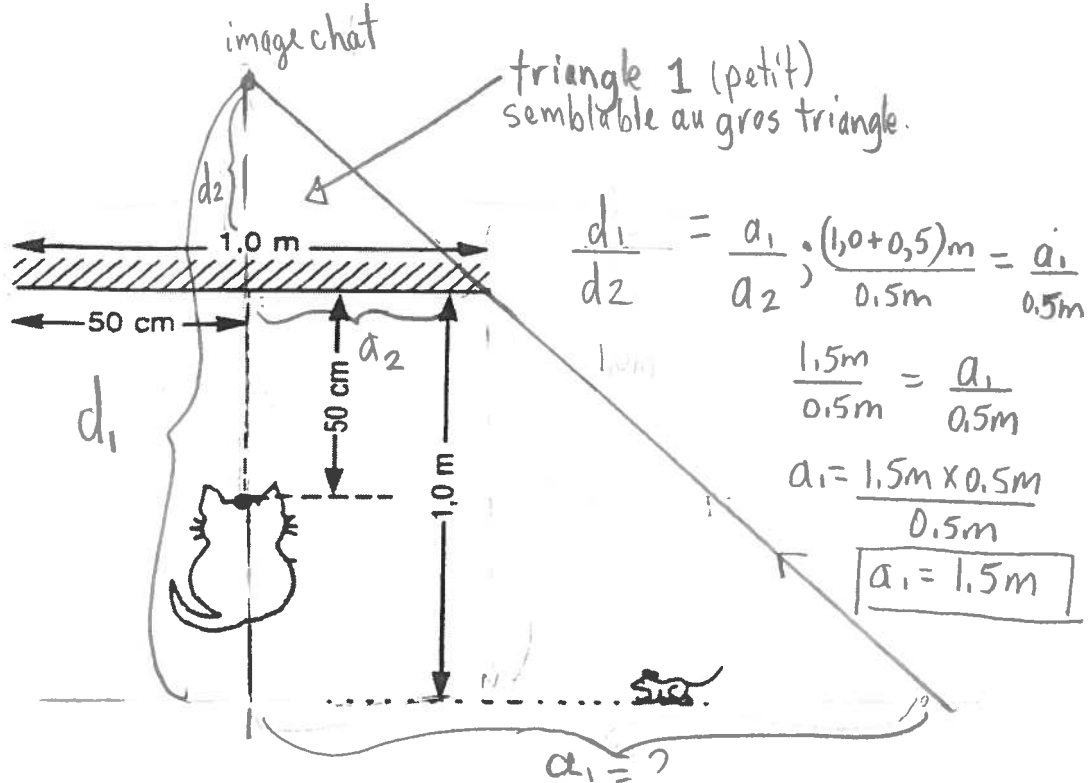 image chat
triangle 1 (petit)
semblable au gros triangle.
d2
1,0 m
50 cm
a2
50 cm
1,0 m
d1
d1/d2 = a1/a2 ; (1,0+0,5)m/0.5m = a1/0.5m
1,5m/0.5m = a1/0.5m
a1 = 1.5m x 0.5m/0.5m
a1 = 1.5m
a1 = ?